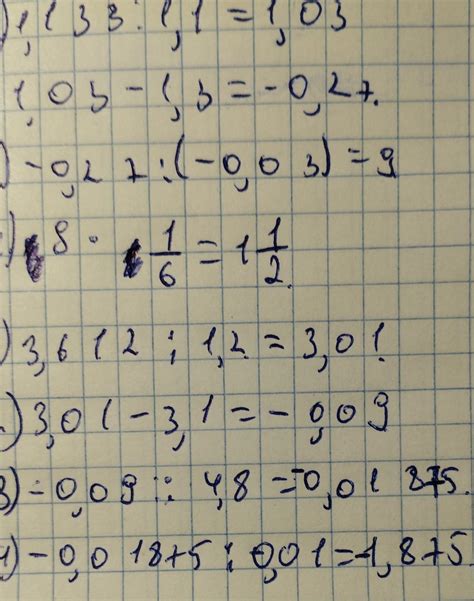 ) 1,133 : 1,1 = 1,03
1,03 - 1,3 = -0,27.
) -0,27 : (-0,03) = 9
) 8 · 1/6 = 1 1/2.
) 3,612 : 1,2 = 3,01.
) 3,01 - 3,1 = -0,09
3) -0,09 : 4,8 = -0,01875.
) -0,01875 : 0,01 = -1,875.